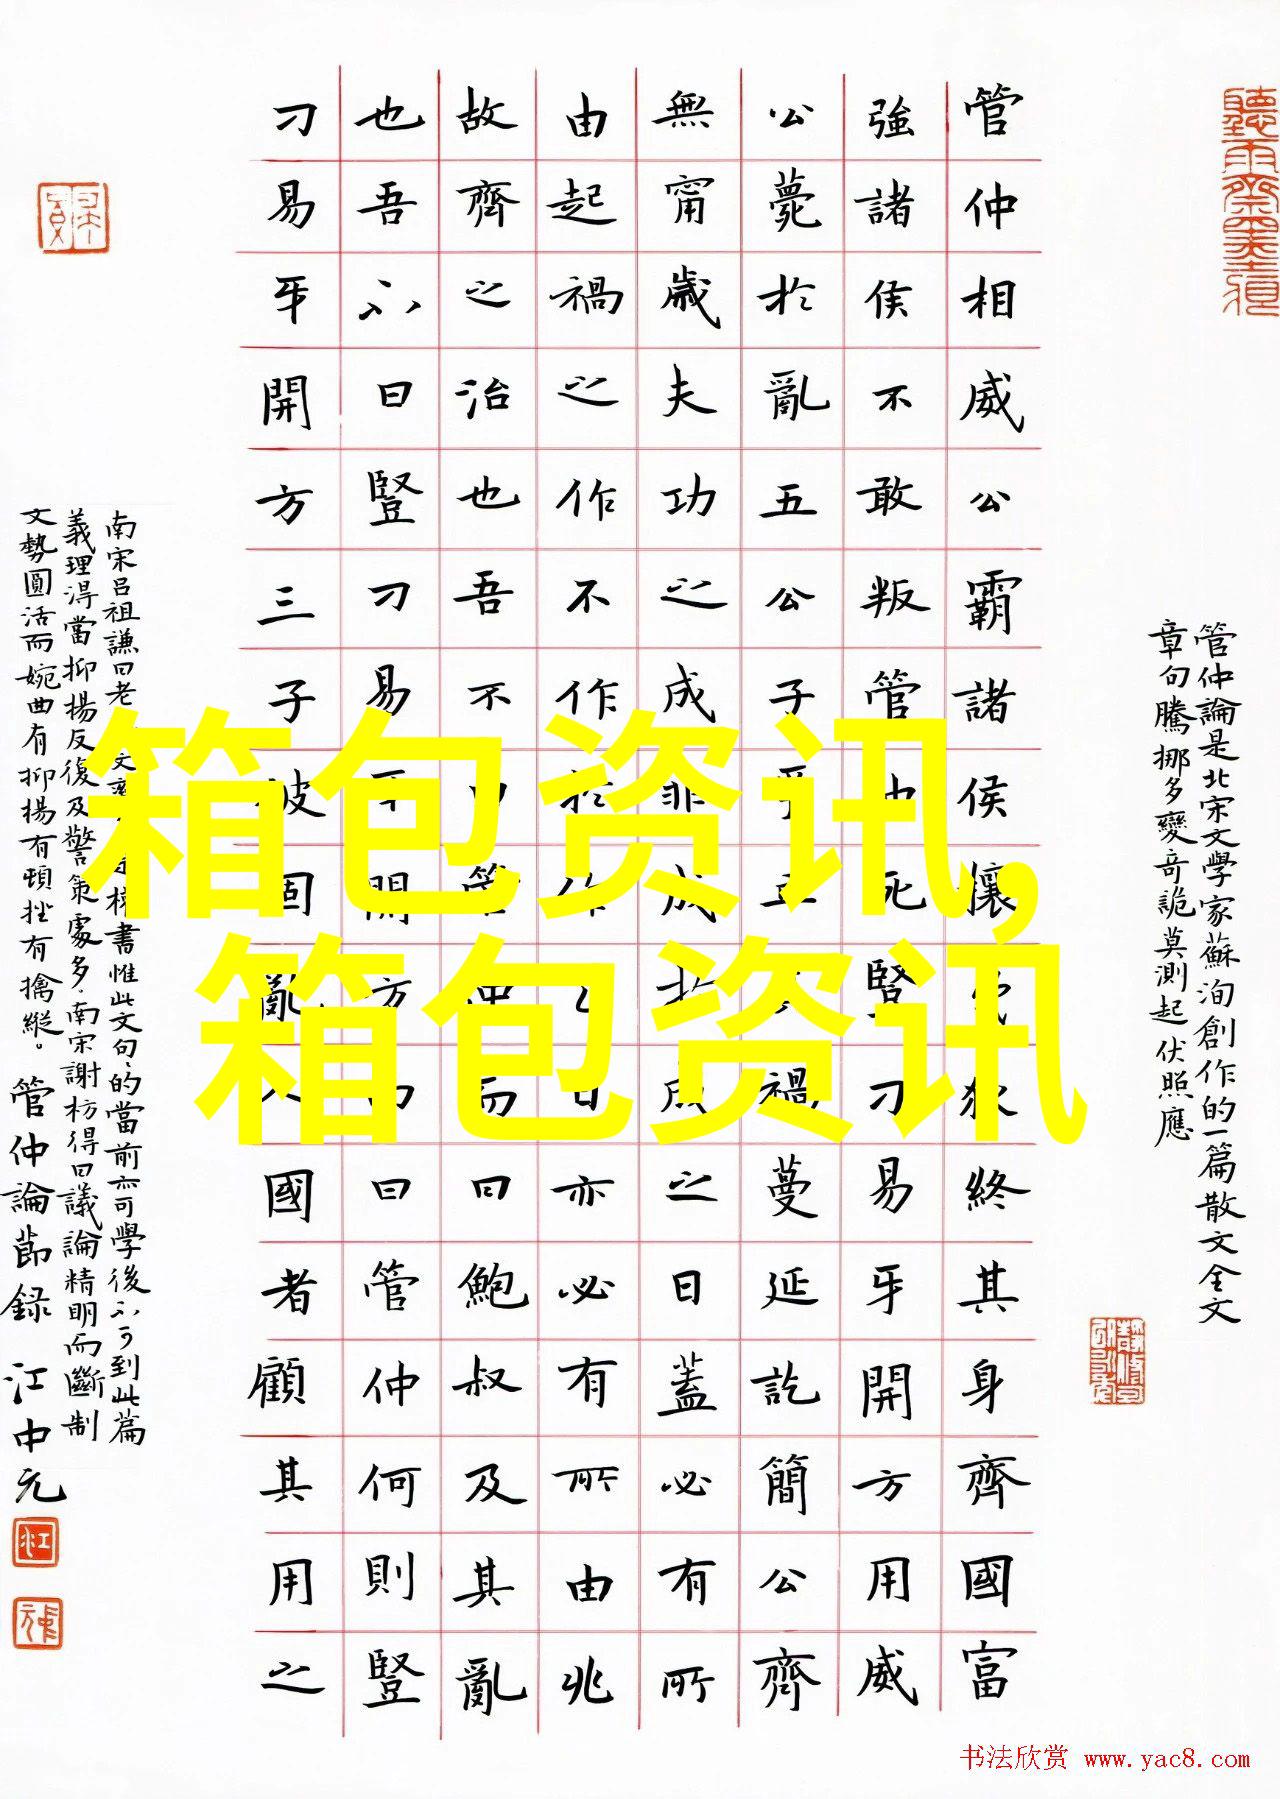 聽雨齋墨痕
管仲論是北宋文學家蘇洵創作的一篇散文全文
章句騰挪多變奇詭莫測起伏照應
管仲相威公霸諸侯攘狄終其身齊國富
強諸侯不敢叛管仲死豎刁易牙開方用威
公薨於亂五公子爭立其禍蔓延訖簡公齊
無甯歲夫功之成非成於成之日蓋必有所
由起禍之作不作於作之日亦必有所由兆
故齊之治也吾不曰管仲而曰鮑叔及其亂
也吾不曰豎刁易牙開方而曰管仲何則豎
刁易牙開方三子彼固亂人國者顧其用之
南宋呂祖謙曰老文書惟此文句、的當前亦可學後不可到此篇
義理淂當抑揚反復及警策處多.南宋謝枋得曰議論精明而斷制
文勢圓活而婉曲有抑揚有頓挫有擒縱。
管仲論節錄 江中元
江
箱包资讯,
箱包资讯
书法欣赏 www.yac8.com